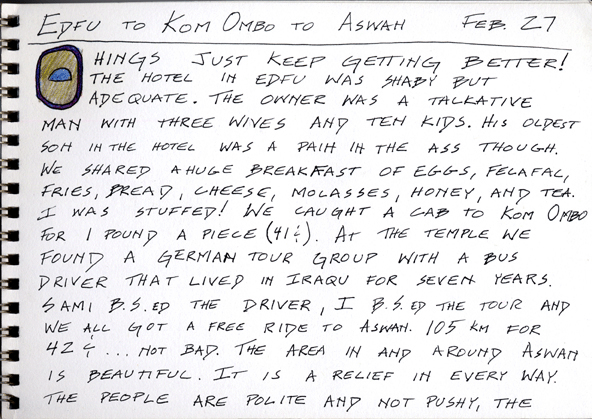 EDFU TO KOM OMBO TO ASWAN FEB. 27
HINGS JUST KEEP GETTING BETTER!
THE HOTEL IN EDFU WAS SHABY BUT
ADEQUATE. THE OWNER WAS A TALKATIVE
MAN WITH THREE WIVES AND TEN KIDS. HIS OLDEST
SON IN THE HOTEL WAS A PAIN IN THE ASS THOUGH.
WE SHARED A HUGE BREAKFAST OF EGGS, FELAFAL,
FRIES, BREAD, CHEESE, MOLASSES, HONEY, AND TEA.
I WAS STUFFED! WE CAUGHT A CAB TO KOM OMBO
FOR 1 POUND A PIECE (41¢). AT THE TEMPLE WE
FOUND A GERMAN TOUR GROUP WITH A BUS
DRIVER THAT LIVED IN IRAQU FOR SEVEN YEARS.
SAMI B.S.ED THE DRIVER, I B.S.ED THE TOUR AND
WE ALL GOT A FREE RIDE TO ASWAN. 105 KM FOR
42¢... NOT BAD. THE AREA IN AND AROUND ASWAN
IS BEAUTIFUL. IT IS A RELIEF IN EVERY WAY.
THE PEOPLE ARE POLITE AND NOT PUSHY, THE